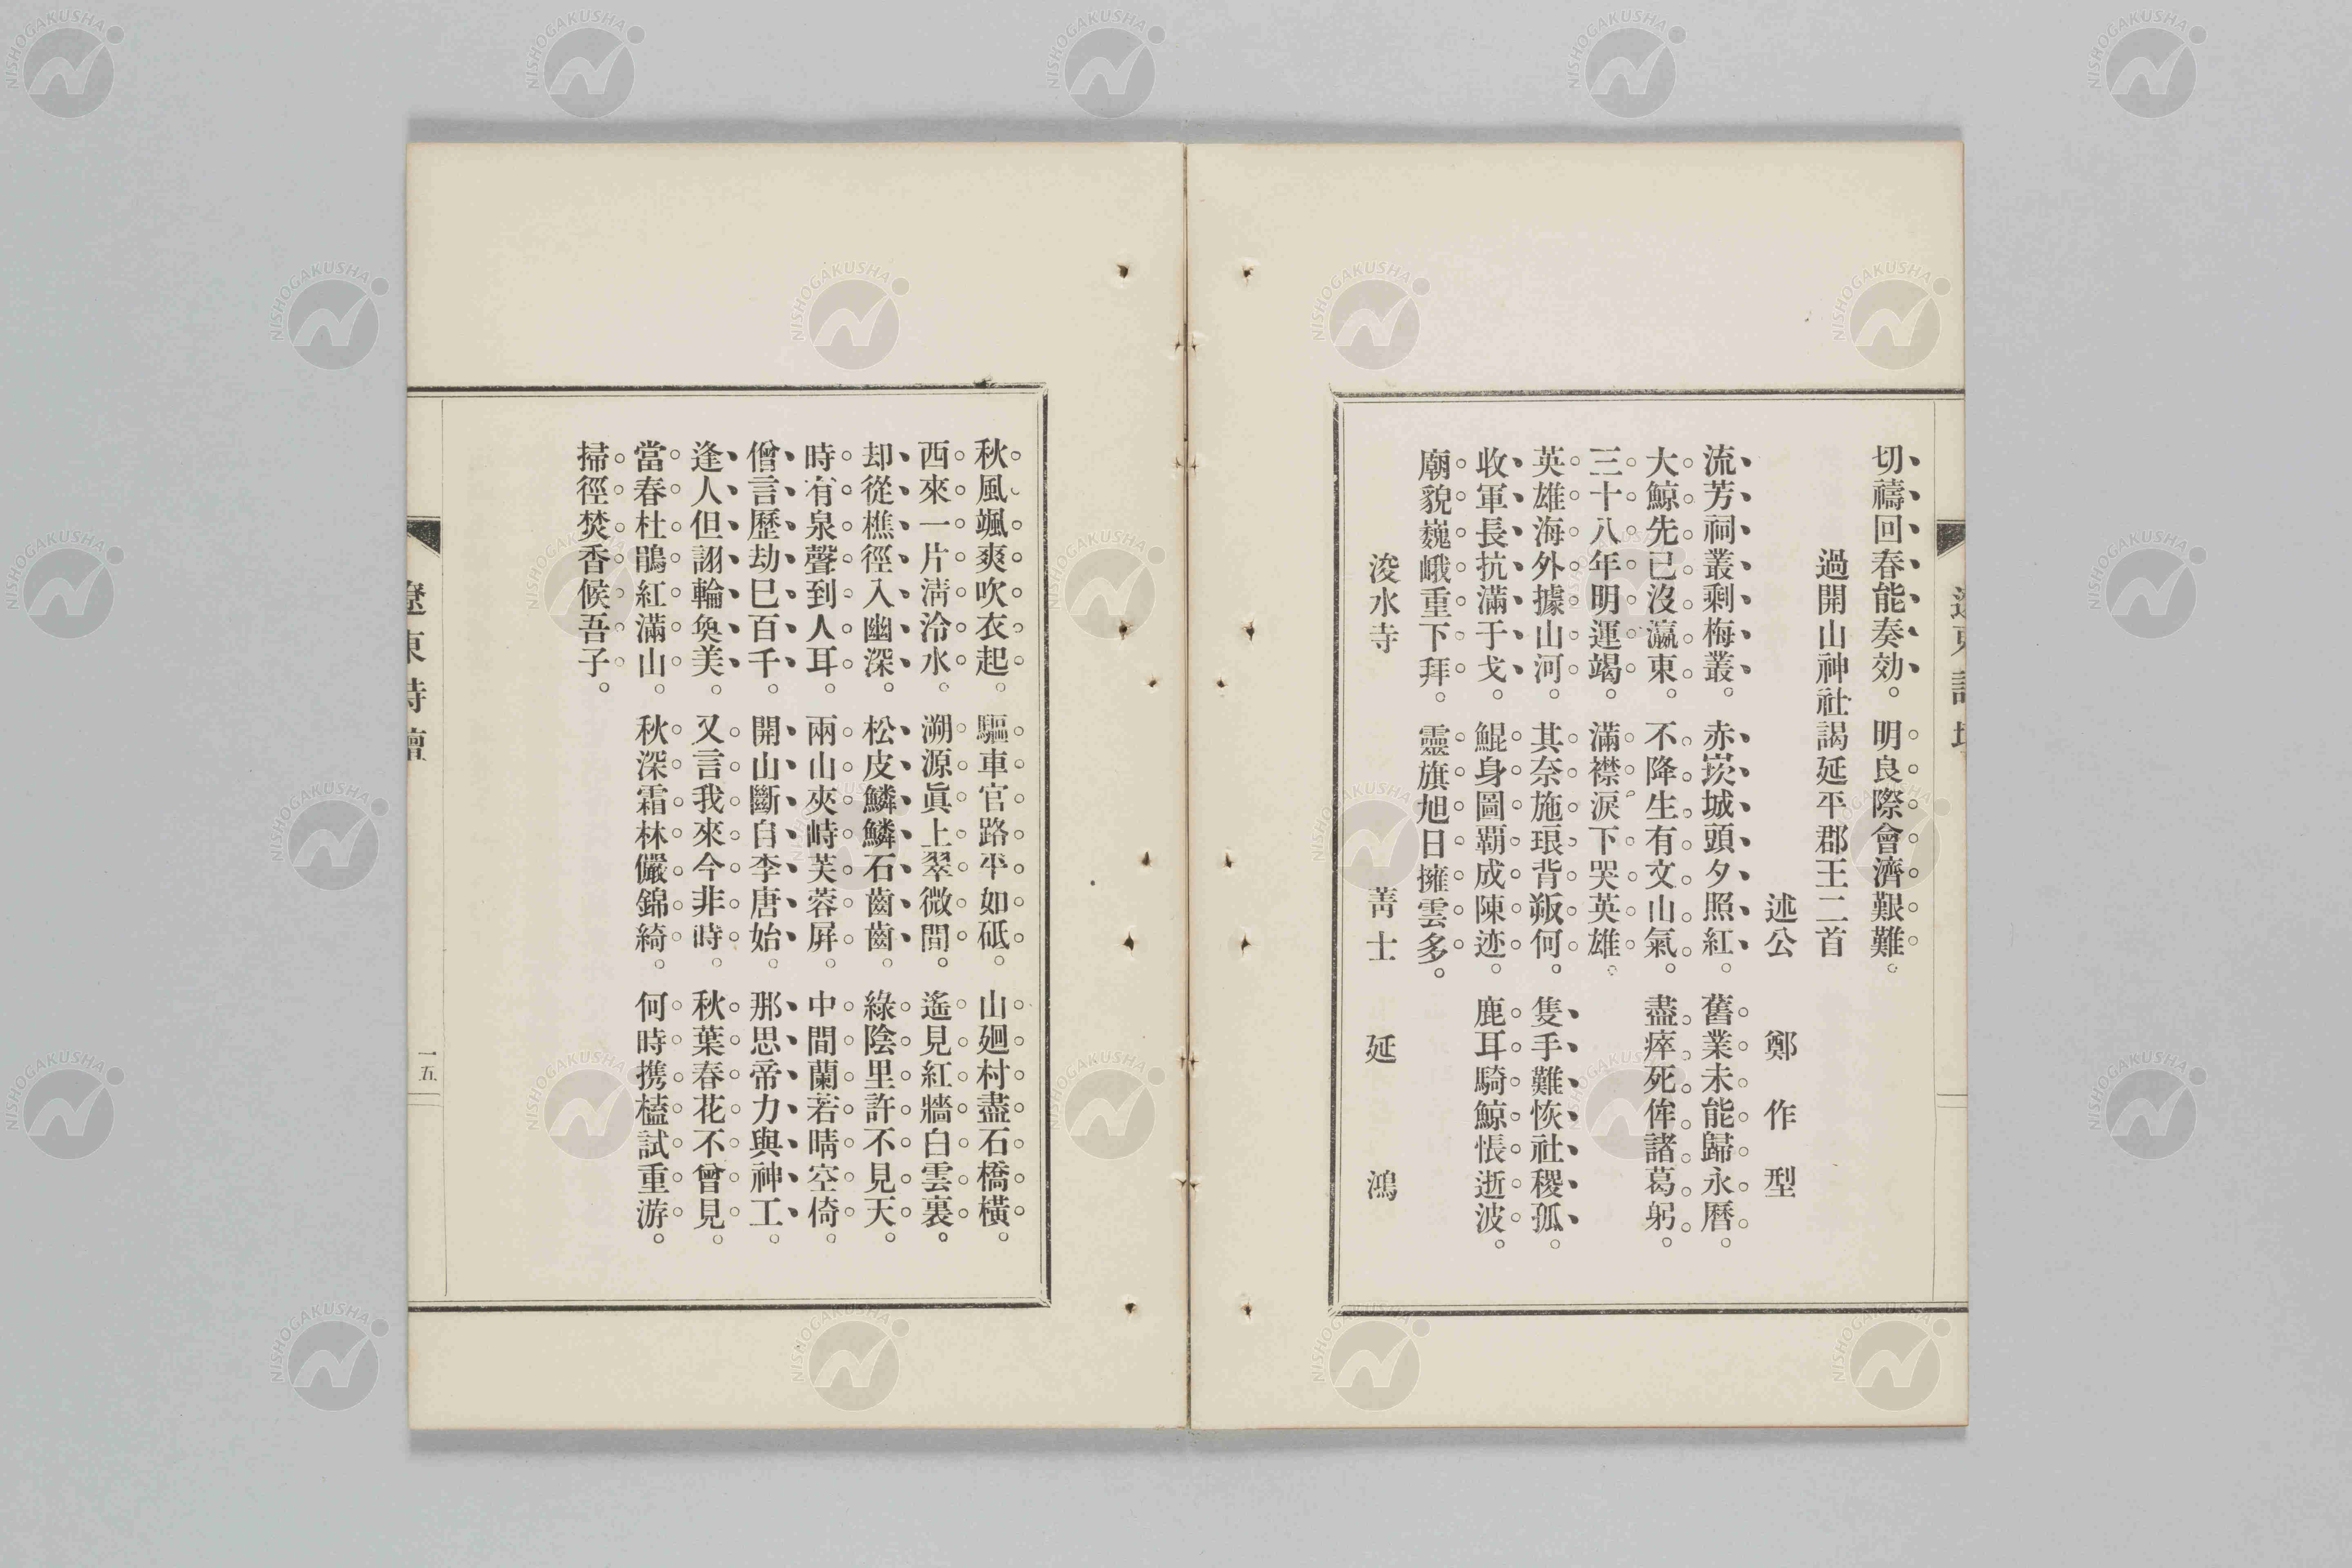 切禱回春能奏効。明良際會濟艱難。
過開山神社謁延平郡王二首
述公 鄭作型
流芳祠叢剩梅叢。赤崁城頭夕照紅。舊業未能歸永曆。
大鯨先已沒瀛東。不降生有文山氣。盡瘁死侔諸葛躬。
三十八年明運竭。滿襟淚下哭英雄。
英雄海外據山河。其奈施琅背叛何。隻手難恢社稷孤。
收軍長抗滿于戈。鯤身圖覇成陳迹。鹿耳騎鯨悵逝波。
廟貌巍峨重下拜。靈旗旭日擁雲多。
浚水寺 菁士 延鴻
秋風颯爽吹衣起。驅車官路平如砥。山廻村盡石橋橫。
西來一片淸泠水。溯源眞上翠微間。遙見紅牆白雲裏。
却從樵徑入幽深。松皮鱗鱗石齒齒。綠陰里許不見天。
時有泉聲到人耳。兩山夾峙芙蓉屛。中間蘭若晴空倚。
僧言歷劫巳百千。開山斷自李唐始。那思帝力與神工。
逢人但詡輪奐美。又言我來今非時。秋葉春花不曾見。
當春杜鵑紅滿山。秋深霜林儼錦綺。何時携榼試重游。
掃徑焚香候吾子。
遼東詩壇
一五
NISHOGAKUSHA